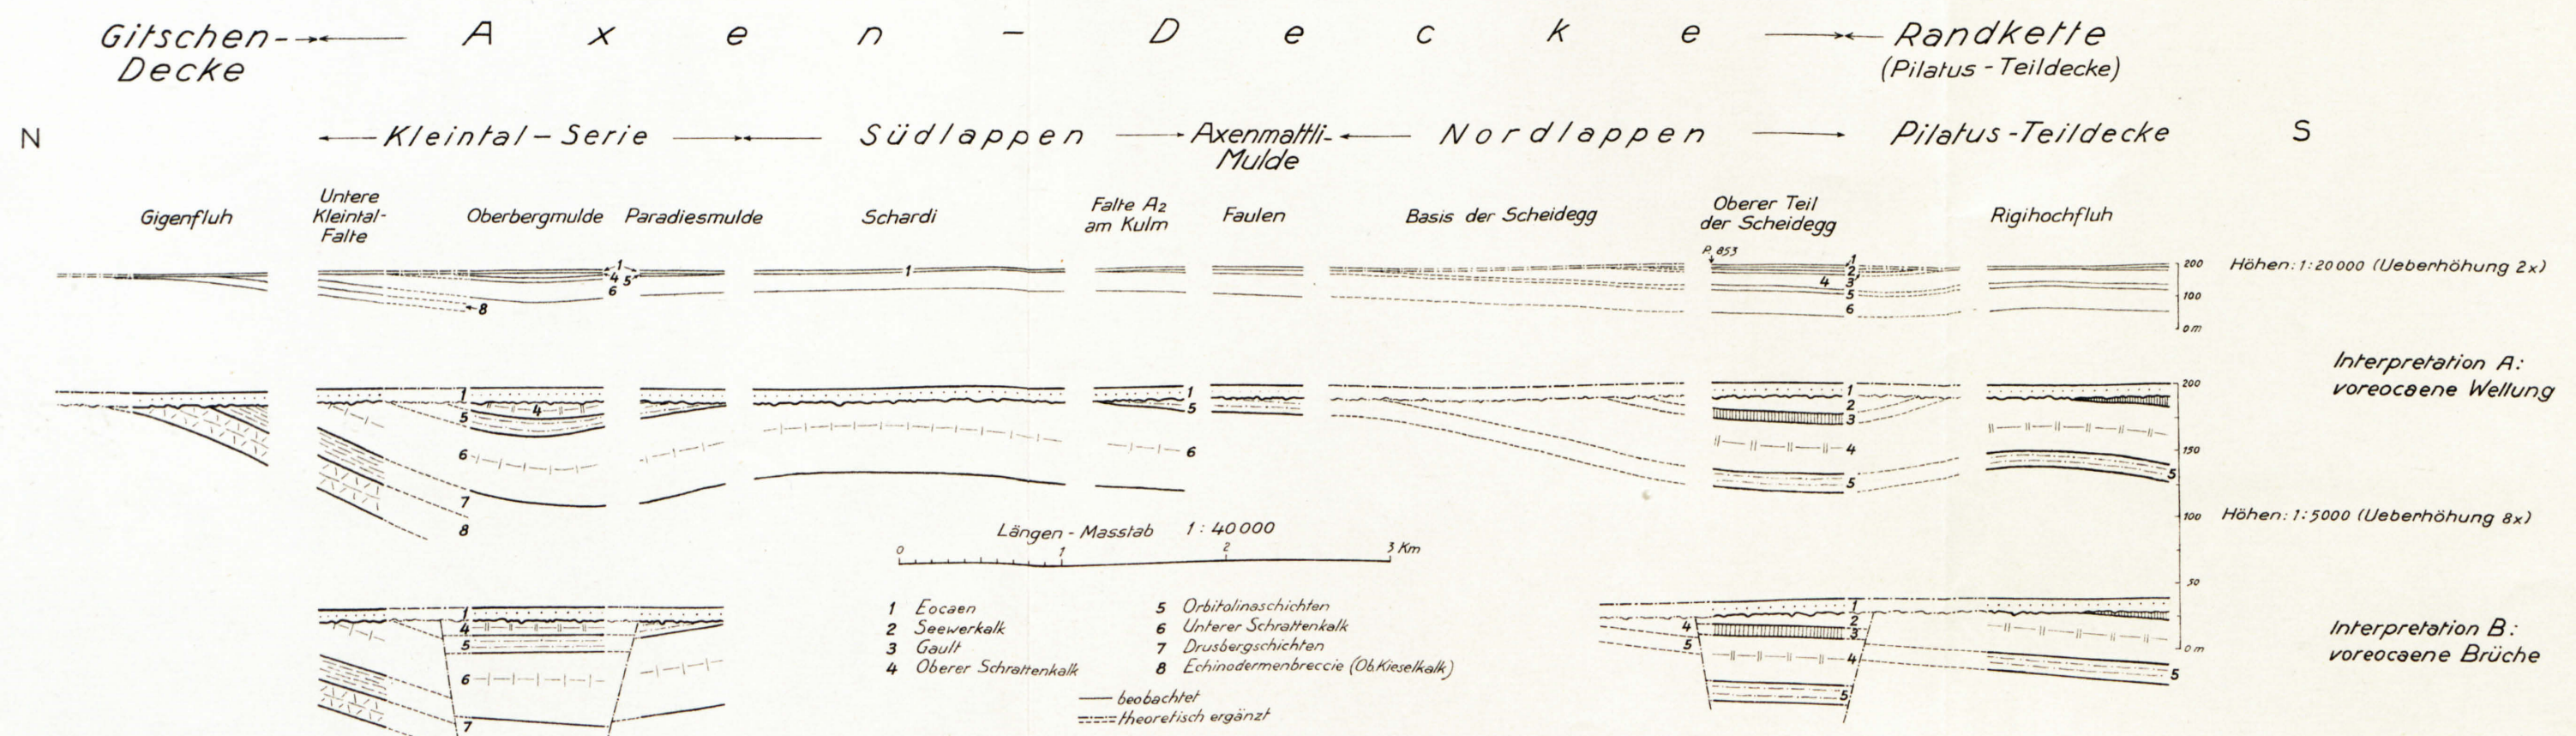 Gitschen- Axen-Decke Randkette
Decke (Pilatus - Teildecke)
N Kleintal - Serie Südlappen Axenmattli- Nordlappen Pilatus - Teildecke S
Mulde
Gigenfluh
Untere
Kleintal-
Falte
Oberbergmulde Paradiesmulde Schardi
Falte A2
am Kulm
Faulen Basis der Scheidegg
Oberer Teil
der Scheidegg
Rigihochfluh
P. 853
1 4 5 6 8
1
1 2 3 4 5 6
200
100
0 m
Höhen: 1:20000 (Ueberhöhung 2x)
Interpretation A:
voreocaene Wellung
1 4 5 6 7 8
1 5 6
1 2 3 4 5
5
200
150
100
50
0 m
Höhen: 1:5000 (Ueberhöhung 8x)
Längen - Masstab 1 : 40000
0 1 2 3 Km
1 4 5 6 7
4 5
1 2 3 4 5
5
Interpretation B:
voreocaene Brüche
1 Eocaen
2 Seewerkalk
3 Gault
4 Oberer Schrattenkalk
5 Orbitolinaschichten
6 Unterer Schrattenkalk
7 Drusbergschichten
8 Echinodermenbreccie (Ob.Kieselkalk)
beobachtet
theoretisch ergänzt